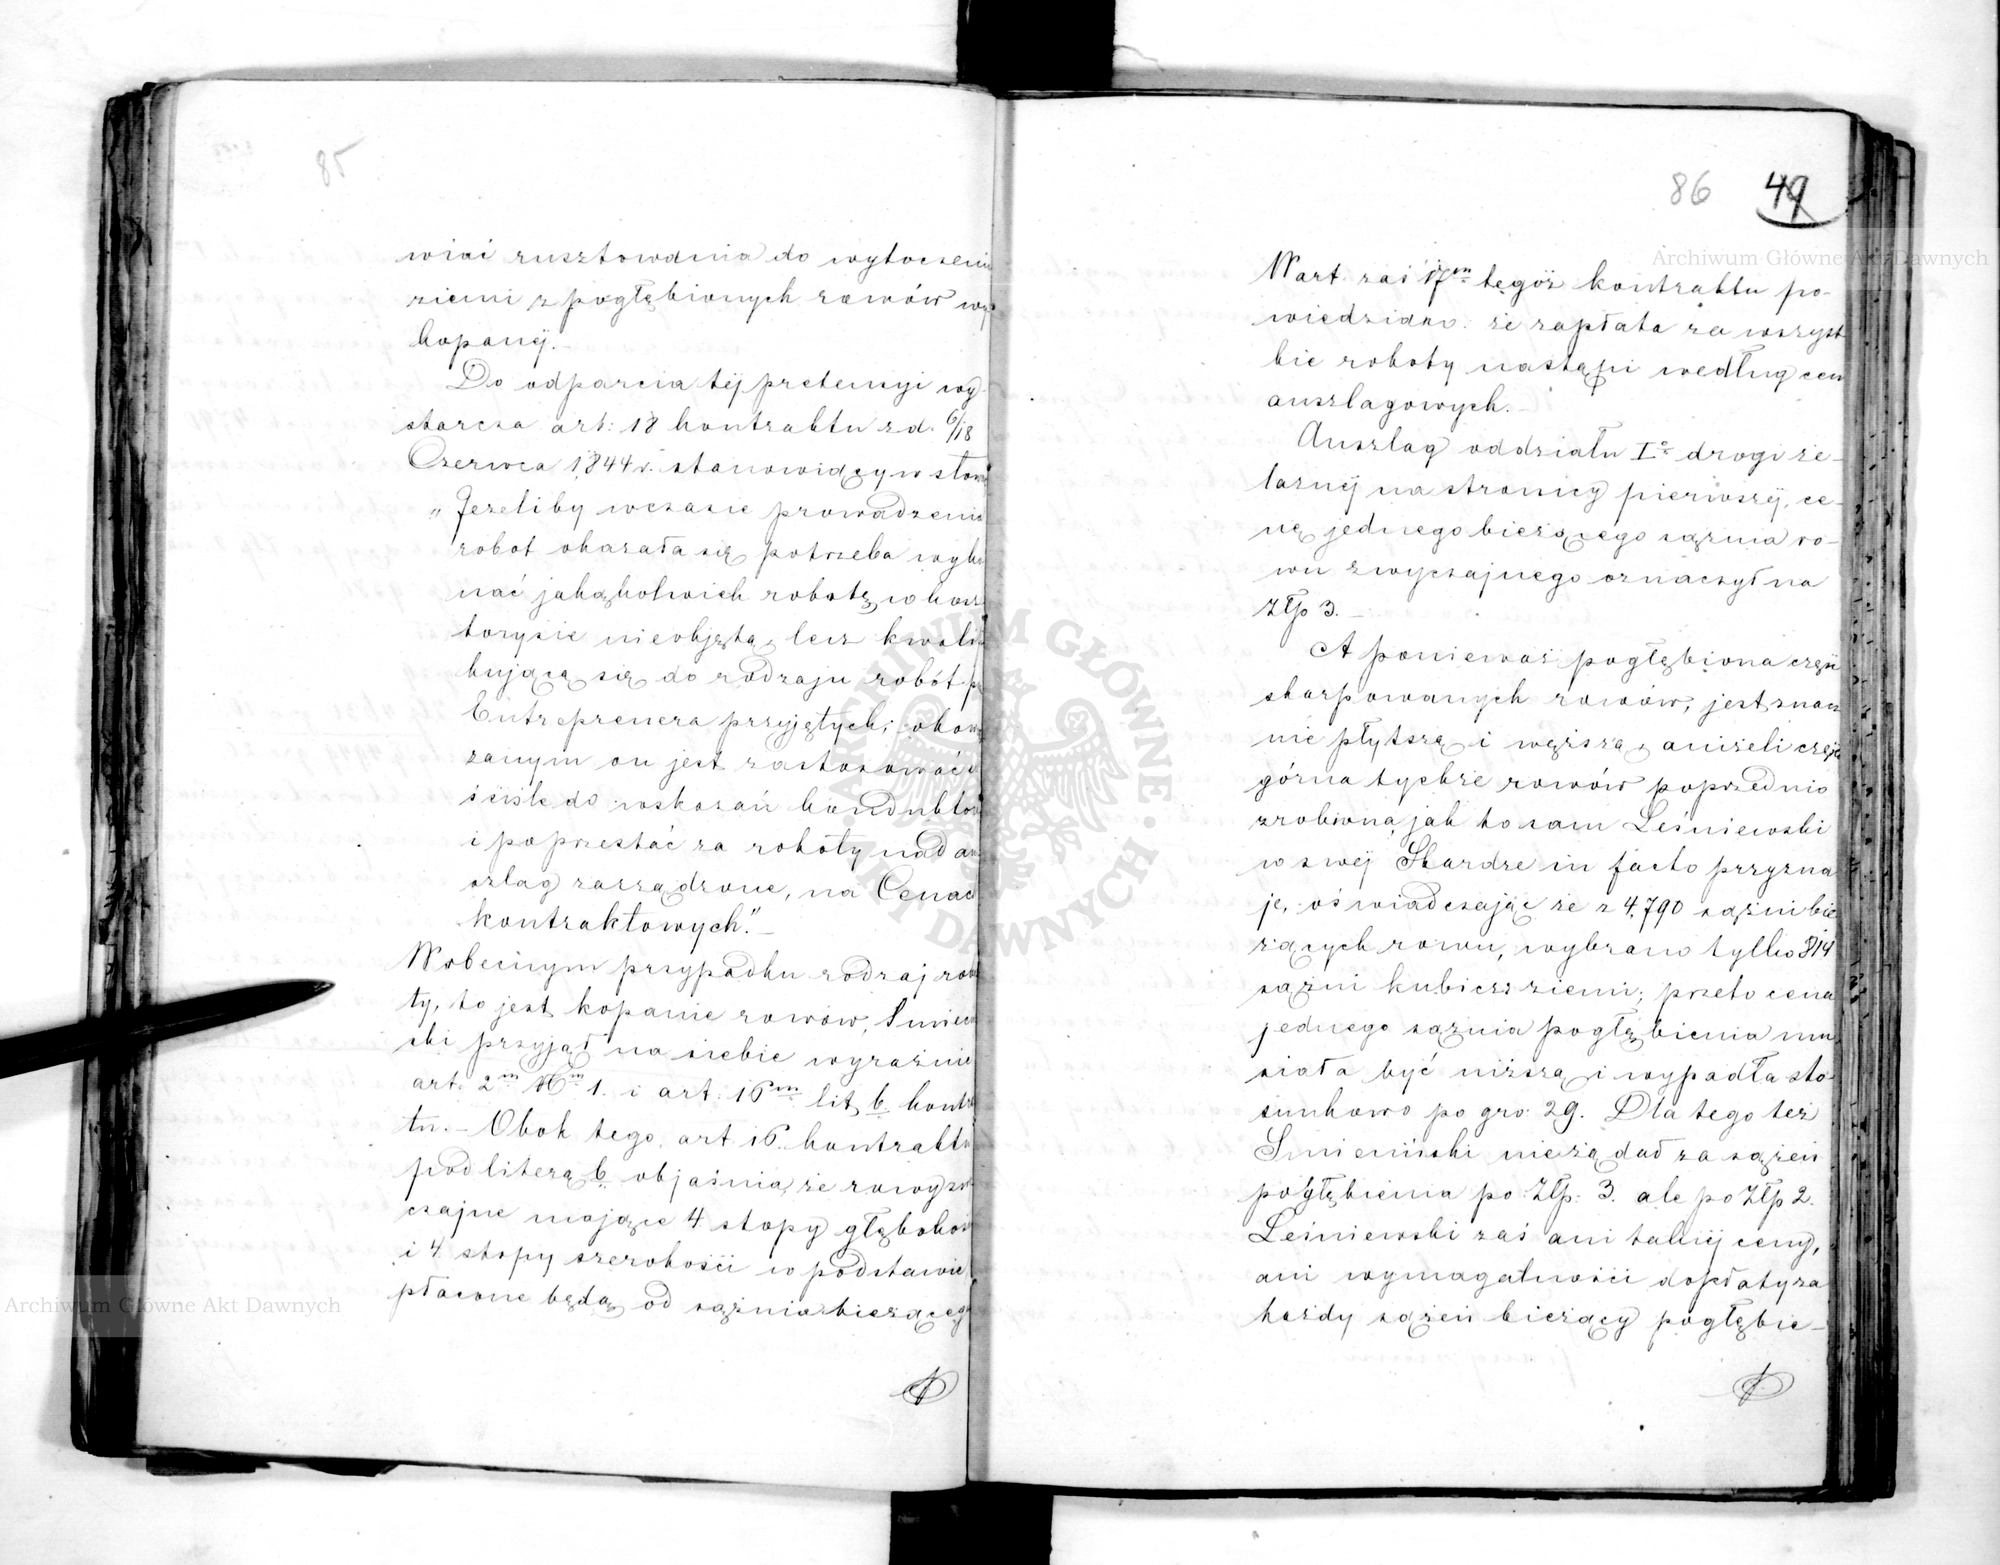 85
wiać rusztowania do wytoczenia
ziemi z pogłębionych rowów wy
kopanéj.
Do odparcia téj pretensyi wy-
starcza art: 18 kontraktu z d. 6/18
Czerwca 1844 r. stanowiący w słow
„Jeżeliby w czasie prowadzenia
robot okazała się potrzeba wyko
nać jakąkolwiek robotę, w kosz
torysie nieobjętą, lecz kwalifi
kującą się do rodzaju robót p
Entreprenera przyjętych; obow
zanym on jest zastosować s
ściśle do wskazań konduktor
i poprzestać za roboty nad an
szlag zarządzone, na Cenac
kontraktowych."
W obecnym przypadku rodzaj robo
ty, to jest kopanie rowów, Smień
ski przyjął na siebie wyraźnie
art: 2m 1. i art: 16m lit. b. kontra
tu. – Obok tego art. 16. kontraktu
pod literą b. objaśnia, że rowy zw
czajne mające 4 stopy głębokośc
i 4 stopy szerokości w podstawie
płacone będą od sążnia bieżąceg
86 49
W art. zaś 17m tegoż kontraktu po-
wiedziano: że zapłata za wszyst
kie roboty nastąpi według cen
anszlagowych.
Anszlag oddziału Io drogi że-
laznéj na stronicy pierwszéj, ce-
nę jednego bieżącego sążnia ro-
wu zwyczajnego oznaczył na
Złp 3. –
A ponieważ pogłębiona część
skarpowanych rowów, jest znacz
nie płytszą i węższą, aniżeli część
górna tychże rowów poprzednio
zrobiona, jak to sam Leśniewski
w swéj Skardze in facto przyzna
je, oświadczając że z 4,790 sążni bie
żących rowu, wybrano tylko 814
sążni kubicz: ziemi; przeto cena
jednego sążnia pogłębienia mu
siała być niższą i wypadła sto-
sunkowo po gro: 29. Dla tego też
Smieniński nie żądał za sążeń
pogłębienia po Złp: 3. ale po Złp 2.
Leśniewski zaś ani takiéj ceny,
ani wymagalności dopłaty za
każdy sążeń bieżący pogłębie-
Archiwum Główne Akt Dawnych
Archiwum Główne Akt Dawnych
ARCHIWUM GŁÓWNE AKT DAWNYCH